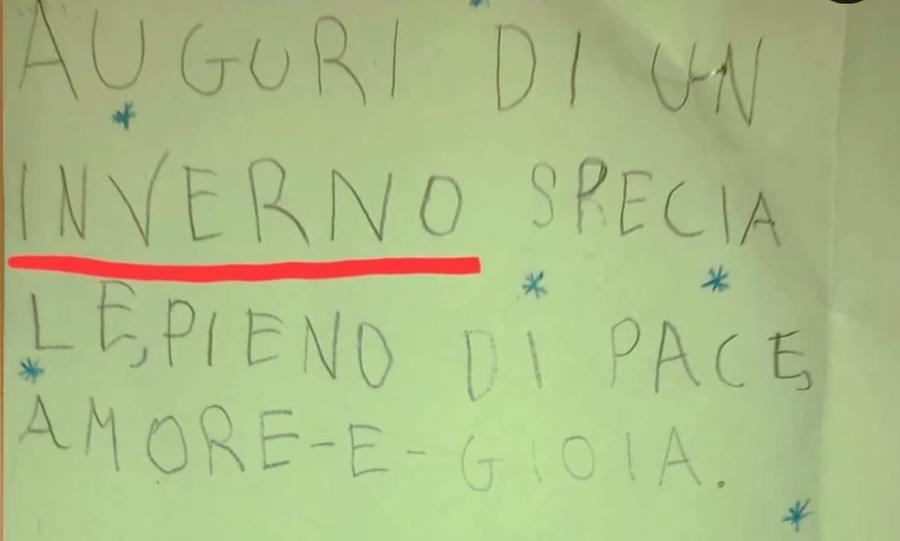 AUGURI DI UN
INVERNO SPECIA
LE, PIENO DI PACE,
AMORE-E-GIOIA.